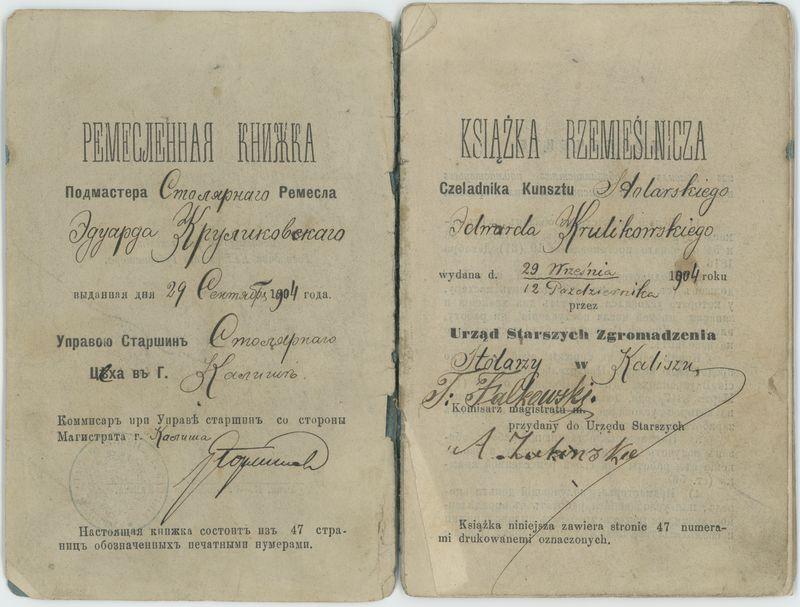 РЕМЕСЛЕННАЯ КНИЖКА
Подмастера Столярнаго Ремесла
Эдуарда Круликовскаго
выданная дня 29 Сентября 1904 года.
Управою Старшинъ Столярнаго
Цеха въ Г. Калишѣ.
Коммисаръ при Управѣ старшинъ со стороны
Магистрата г. Калиша
Настоящая книжка состоитъ изъ 47 стра-
ницъ обозначенныхъ печатными нумерами.
KSIĄŻKA RZEMIEŚLNICZA
Czeladnika Kunsztu Stolarskiego
Edwarda Krulikowskiego
wydana d. 29 Września 1904 roku
12 Października
przez
Urząd Starszych Zgromadzenia
Stolarzy w Kaliszu
T. Falkowski.
Komisarz magistratu m.
przydany do Urzędu Starszych
A.
Książka niniejsza zawiera stronic 47 numera-
mi drukowanemi oznaczonych.